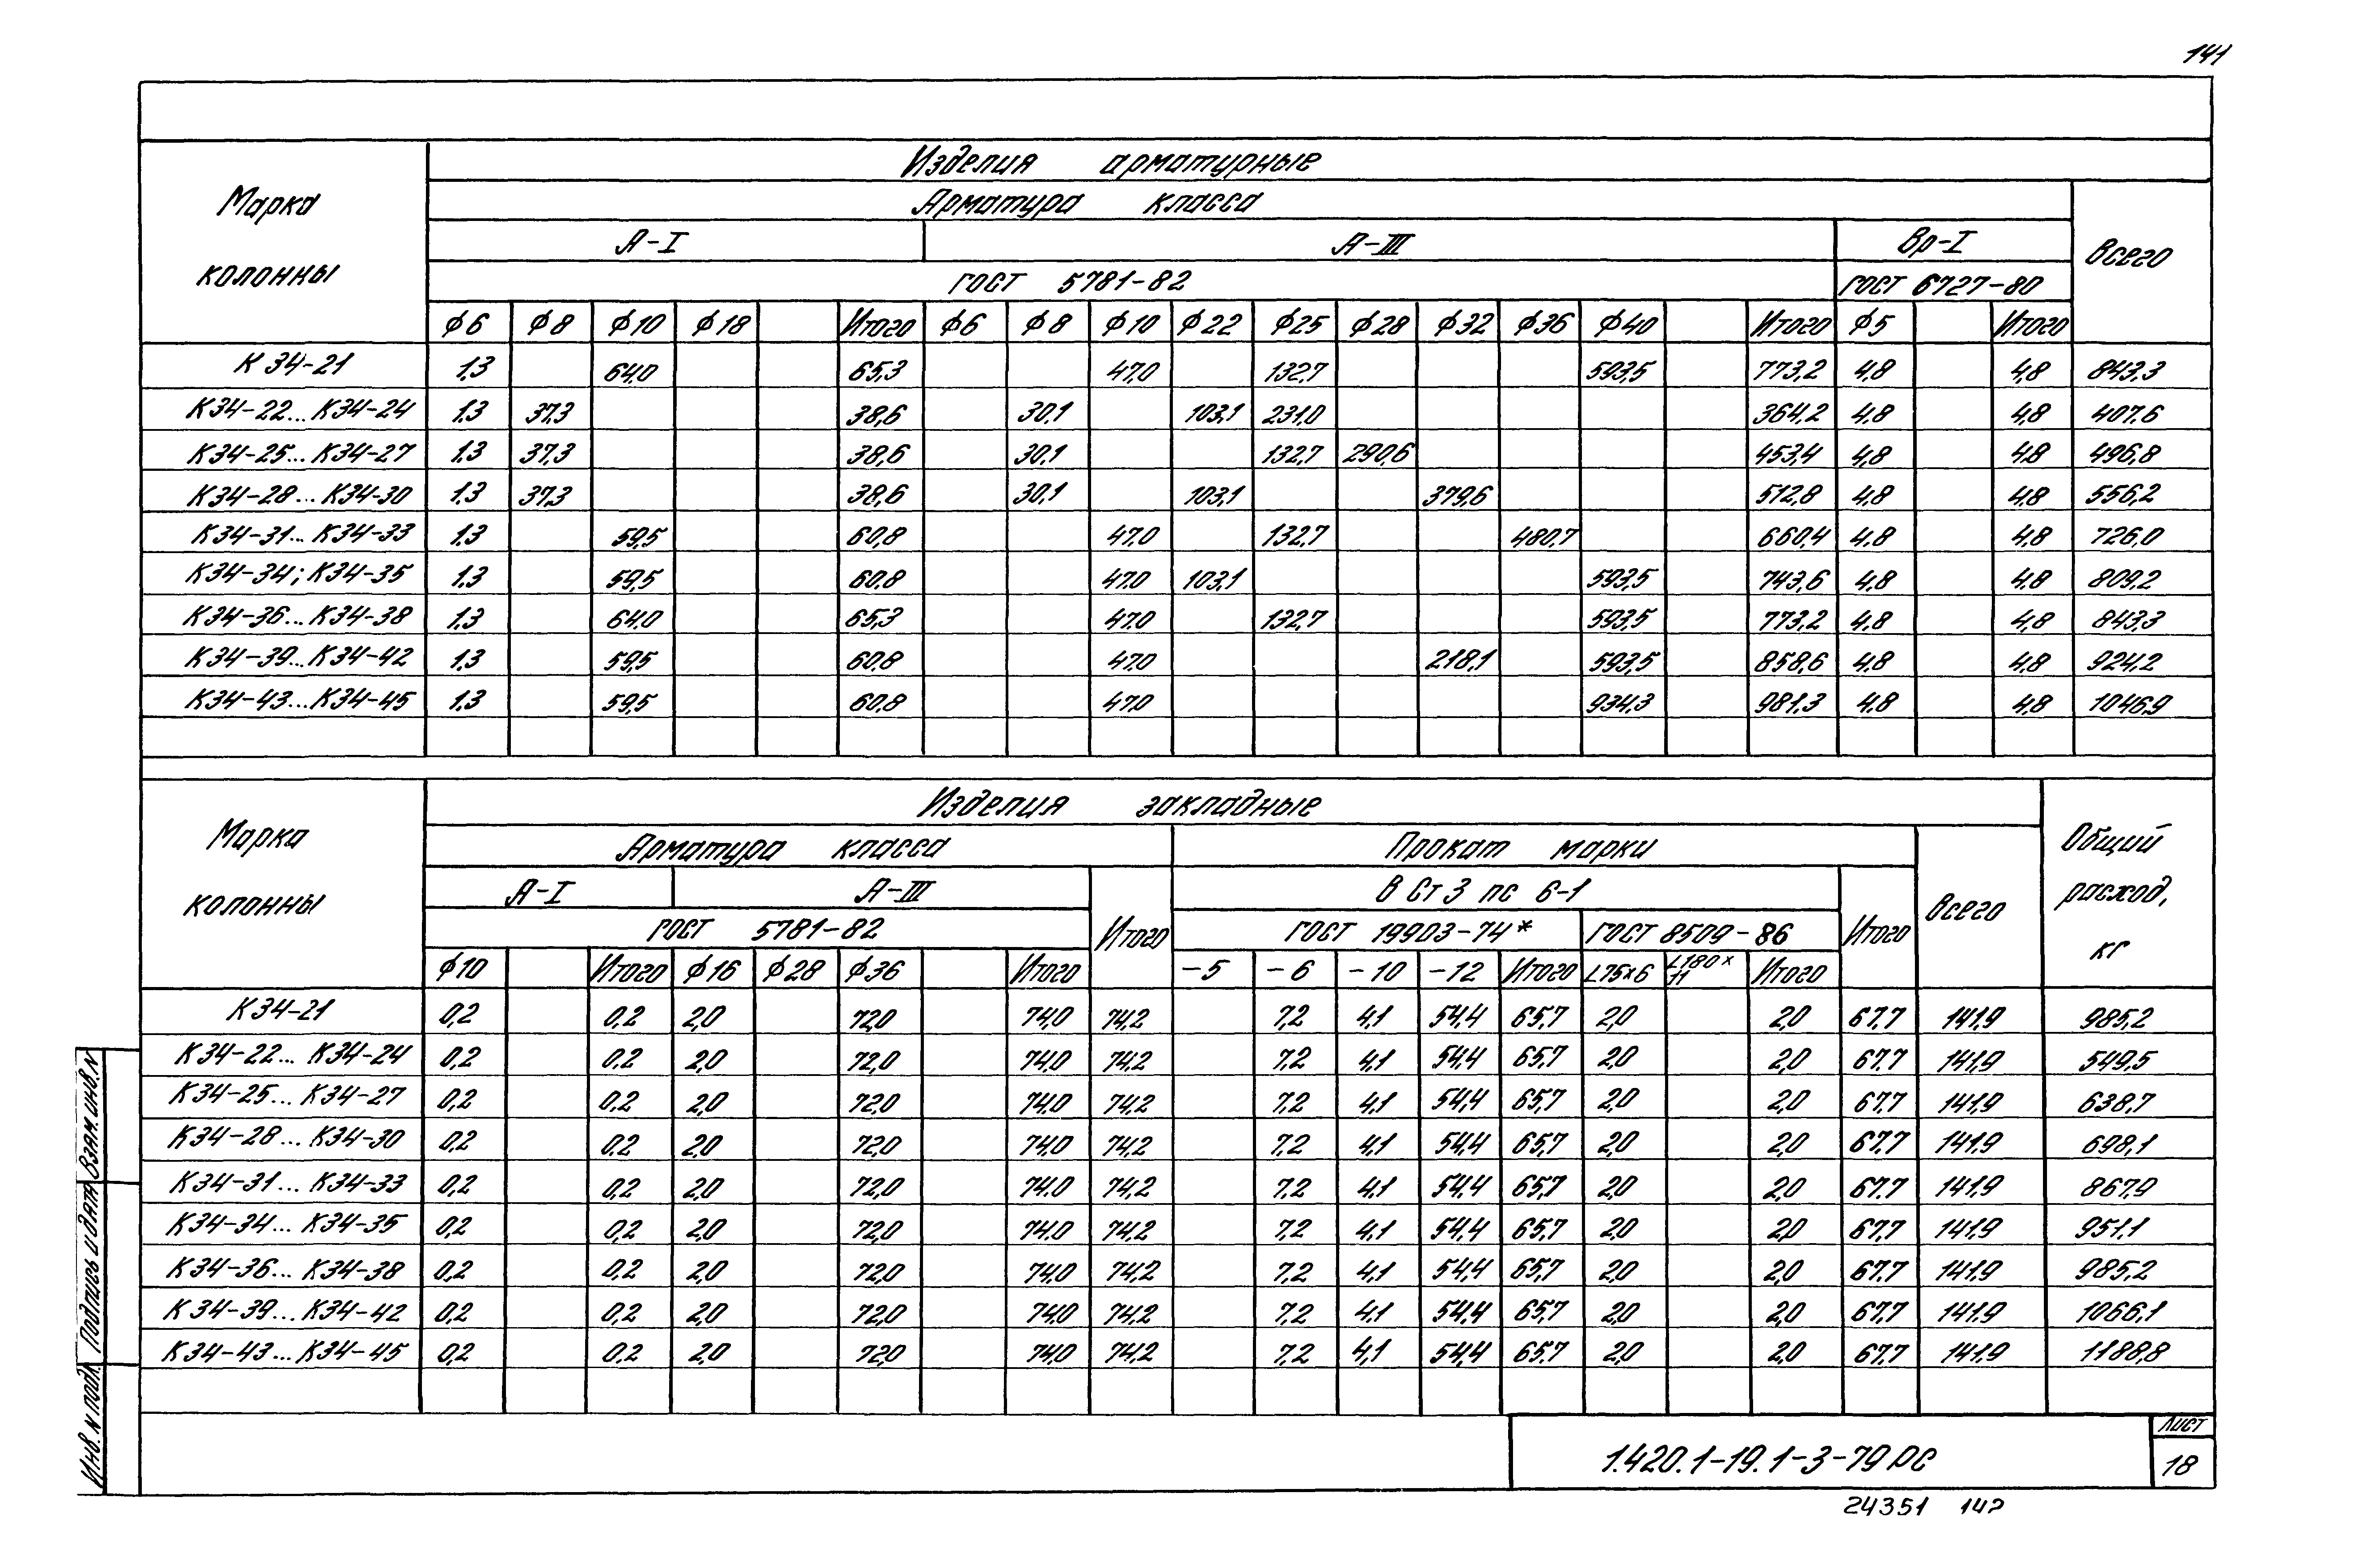 141
Изделия арматурные
Марка колонны
Арматура класса
Всего
А-I А-III Вр-I
ГОСТ 5781-82 ГОСТ 6727-80
ф6 ф8 ф10 ф18 Итого ф6 ф8 ф10 ф22 ф25 ф28 ф32 ф36 ф40 Итого ф5 Итого
К34-21 1,3 64,0 65,3 47,0 132,7 593,5 773,2 4,8 4,8 843,3
К34-22...К34-24 1,3 37,3 38,6 30,1 103,1 231,0 364,2 4,8 4,8 407,6
К34-25...К34-27 1,3 37,3 38,6 30,1 132,7 290,6 453,4 4,8 4,8 496,8
К34-28...К34-30 1,3 37,3 38,6 30,1 103,1 379,6 512,8 4,8 4,8 556,2
К34-31...К34-33 1,3 59,5 60,8 47,0 132,7 480,7 660,4 4,8 4,8 726,0
К34-34; К34-35 1,3 59,5 60,8 47,0 103,1 593,5 743,6 4,8 4,8 809,2
К34-36...К34-38 1,3 64,0 65,3 47,0 132,7 593,5 773,2 4,8 4,8 843,3
К34-39...К34-42 1,3 59,5 60,8 47,0 218,1 593,5 858,6 4,8 4,8 924,2
К34-43...К34-45 1,3 59,5 60,8 47,0 934,3 981,3 4,8 4,8 1046,9
Изделия закладные
Марка колонны
Общий расход, кг
Арматура класса Прокат марки
Всего
А-I А-III Итого В Ст 3 пс 6-1 Итого
ГОСТ 5781-82 ГОСТ 19903-74* ГОСТ 8509-86
ф10 Итого ф16 ф28 ф36 Итого -5 -6 -10 -12 Итого L75×6 L180×11 Итого
К34-21 0,2 0,2 2,0 72,0 74,0 74,2 7,2 4,1 54,4 65,7 2,0 2,0 67,7 141,9 985,2
К34-22...К34-24 0,2 0,2 2,0 72,0 74,0 74,2 7,2 4,1 54,4 65,7 2,0 2,0 67,7 141,9 549,5
К34-25...К34-27 0,2 0,2 2,0 72,0 74,0 74,2 7,2 4,1 54,4 65,7 2,0 2,0 67,7 141,9 638,7
К34-28...К34-30 0,2 0,2 2,0 72,0 74,0 74,2 7,2 4,1 54,4 65,7 2,0 2,0 67,7 141,9 698,1
К34-31...К34-33 0,2 0,2 2,0 72,0 74,0 74,2 7,2 4,1 54,4 65,7 2,0 2,0 67,7 141,9 867,9
К34-34...К34-35 0,2 0,2 2,0 72,0 74,0 74,2 7,2 4,1 54,4 65,7 2,0 2,0 67,7 141,9 951,1
К34-36...К34-38 0,2 0,2 2,0 72,0 74,0 74,2 7,2 4,1 54,4 65,7 2,0 2,0 67,7 141,9 985,2
К34-39...К34-42 0,2 0,2 2,0 72,0 74,0 74,2 7,2 4,1 54,4 65,7 2,0 2,0 67,7 141,9 1066,1
К34-43...К34-45 0,2 0,2 2,0 72,0 74,0 74,2 7,2 4,1 54,4 65,7 2,0 2,0 67,7 141,9 1188,8
Инв. N подл. Подпись и дата Взам. инв. N
1.420.1-19.1-3-79 РС
Лист
18
24351 142